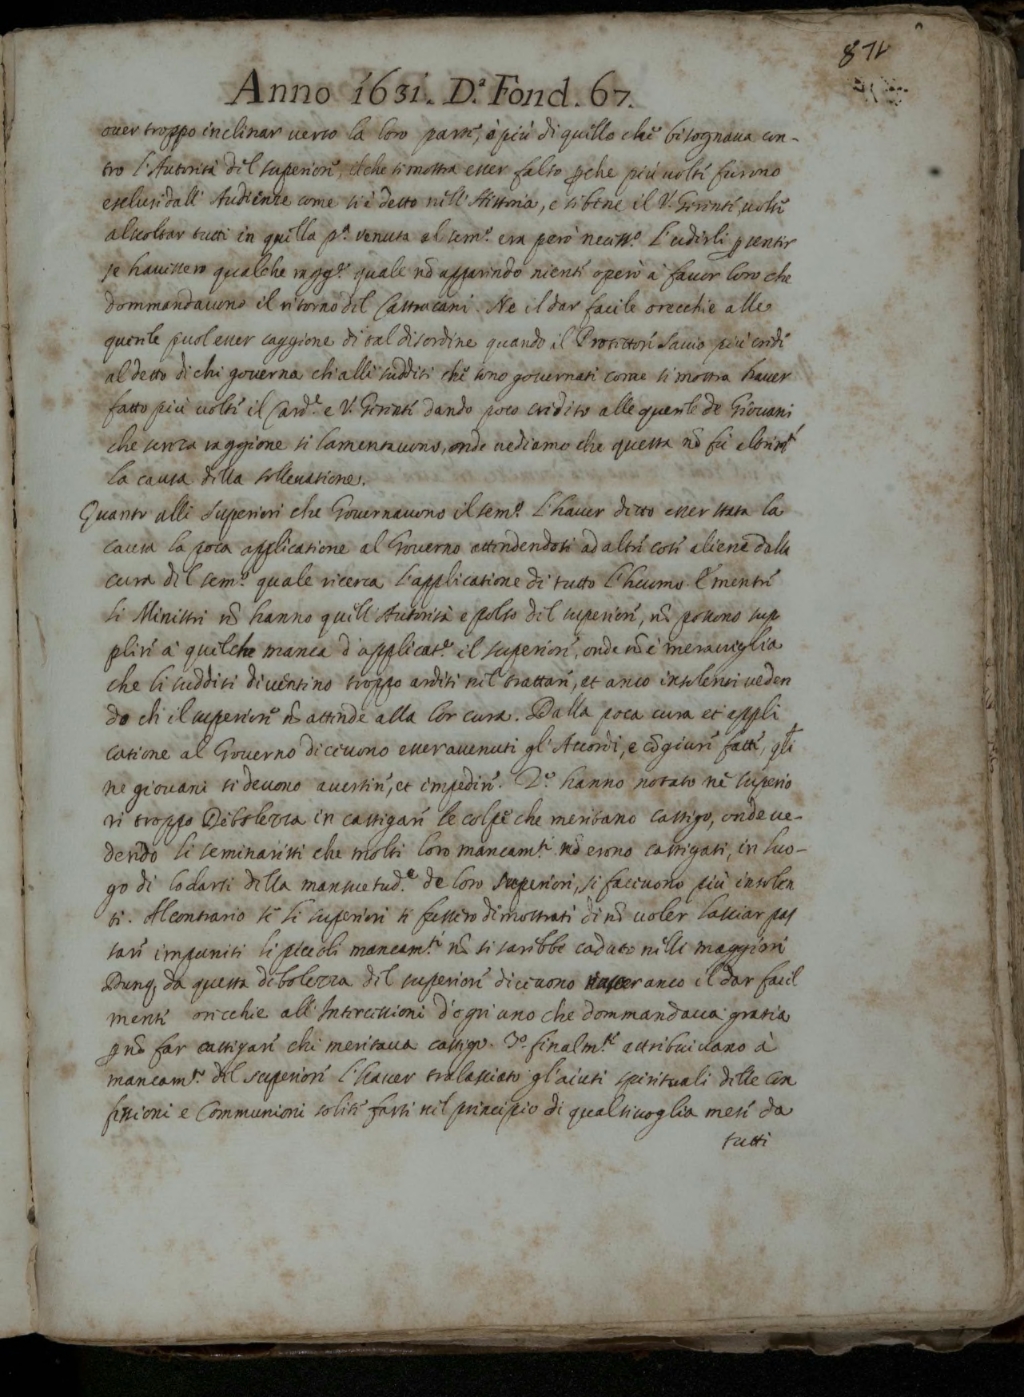 871
Anno 1631. D.ª Fond. 67.
over troppo inclinar verso la loro parte, ò più di quello che bisognava con-
tro l'Autorità del superiore, il che si mostra esser falso p che più volte furono
esclusi dall' Audienze come si è detto nell' Historia, e sibene il V. Gerente, volse
ascoltar tutti in quella p.ª venuta al sem.º era però necess.º l'udirli p sentir
se havessero qualche ragg.e quale nõ apparendo niente operò à favor loro che
dommandavono il ritorno del Castracani. Ne il dar facile orecchie alle
querele puol esser caggione di tal disordine quando il Protettore savio più crede
al detto di chi governa ch alli sudditi che sono governati come si mostra haver
fatto più volte il Card.e e V. Gerente dando poco credito alle querele de Giovani
che senza raggione si lamentavono, onde vediamo che questa nõ fù altrim.te
la causa della sollevatione.
Quanto alli Superiori che Governavono il sem.º l'haver detto esser stata la
causa la poca applicatione al Governo attendendosi ad altre cose aliene dalla
cura del sem.º quale ricerca l'applicatione di tutto l'huomo. E mentre
li Ministri nõ hanno quell' Autorità e polso del superiore, nõ possono sup
plire a quel che manca d'applicat.e il superiore, onde nõ è meraviglia
che li sudditi diventino troppo arditi nel trattare, et anco insolenti veden
do ch il superiore nõ attende alla lor cura. Dalla poca cura et appli
catione al Governo dicevono esser avenuti gl' Accordi, e cõgiure fatte,
ne giovani si devono avertire, et impedire. 2.º hanno notato ne superio
ri troppo Debolezza in castigare le colpe che meritano castigo, onde ve-
dendo li seminaristi che molti loro mancam.ti nõ erono castigati, in luo-
go di lodarsi della mansuetud.e de loro superiori, si facevono più insolen
ti. Al contrario se li superiori si fossero dimostrati di nõ voler lasciar pas
sare impuniti li piccoli mancam.ti nõ si sarebbe caduto nelli maggiori
Dunq, da questa debolezza del superiore dicevono nascer anco il dar facil
mente orecchie all' Intercessioni d'ogni uno che dommandava gratia
p nõ far castigare chi meritava castigo. 3.º finalm.te attribuivano à
mancam.to del superiore l'haver tralasciato gl'aiuti spirituali delle Con
fessioni e Communioni solite farsi nel principio di qualsivoglia mese da
tutti